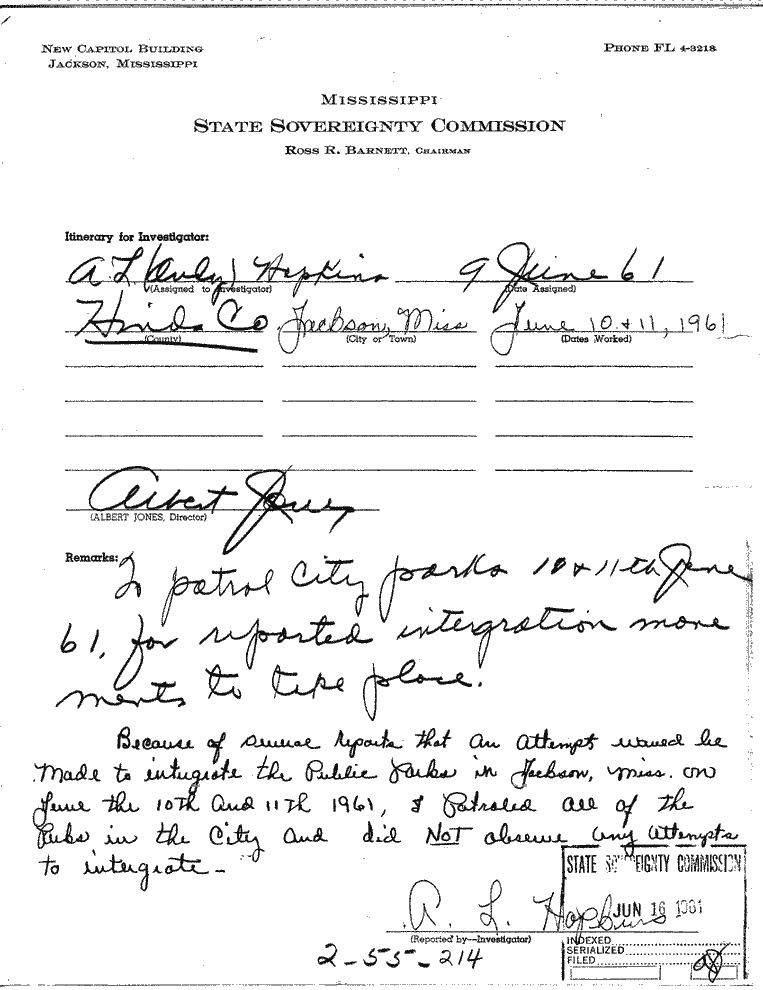 NEW CAPITOL BUILDING
JACKSON, MISSISSIPPI
PHONE FL 4-3218
MISSISSIPPI
STATE SOVEREIGNTY COMMISSION
ROSS R. BARNETT, CHAIRMAN
Itinerary for Investigator:
A L (Andy) Hopkins 9 June 61
(Assigned to Investigator) (Date Assigned)
Hinds Co Jackson, Miss June 10 & 11, 1961
(County) (City or Town) (Dates Worked)
Albert Jones
(ALBERT JONES, Director)
Remarks:
To patrol City parks 10 & 11th June
61, for reported intergration move
ments to take place.
Because of several reports that an attempt would be
made to intergrate the Public Parks in Jackson, Miss. on
June the 10th and 11th 1961, I Patroled all of the
Parks in the City and did NOT observe any attempts
to intergrate -
STATE SOVEREIGNTY COMMISSION
A. L. Hopkins
JUN 16 1961
(Reported by—Investigator)
INDEXED
SERIALIZED
FILED
2-55-214